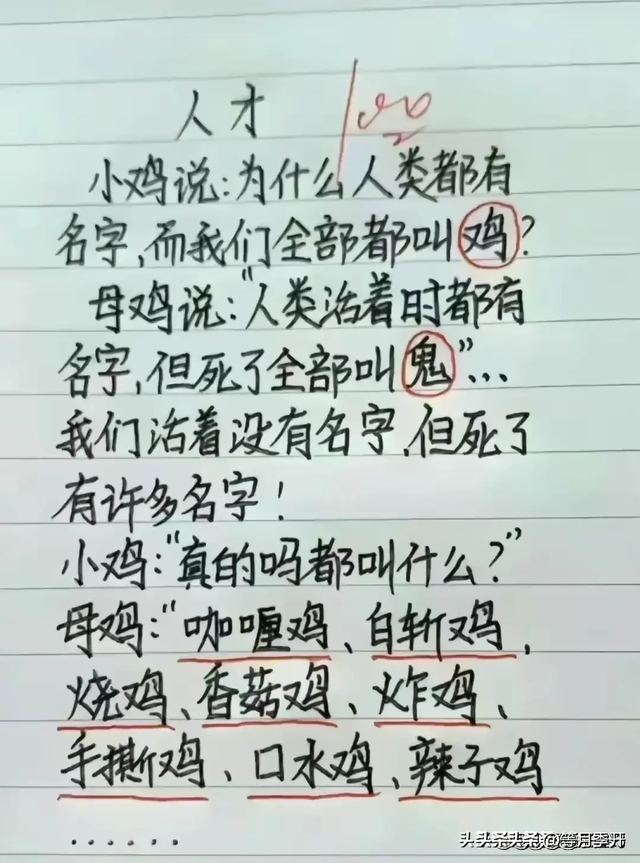 人才 100
小鸡说:为什么人类都有
名字,而我们全部都叫鸡?
母鸡说:"人类活着时都有
名字,但死了全部叫鬼"...
我们活着没有名字,但死了
有许多名字!
小鸡:"真的吗都叫什么?"
母鸡:"咖喱鸡、白斩鸡,
烧鸡、香菇鸡、炸鸡、
手撕鸡、口水鸡、辣子鸡
......